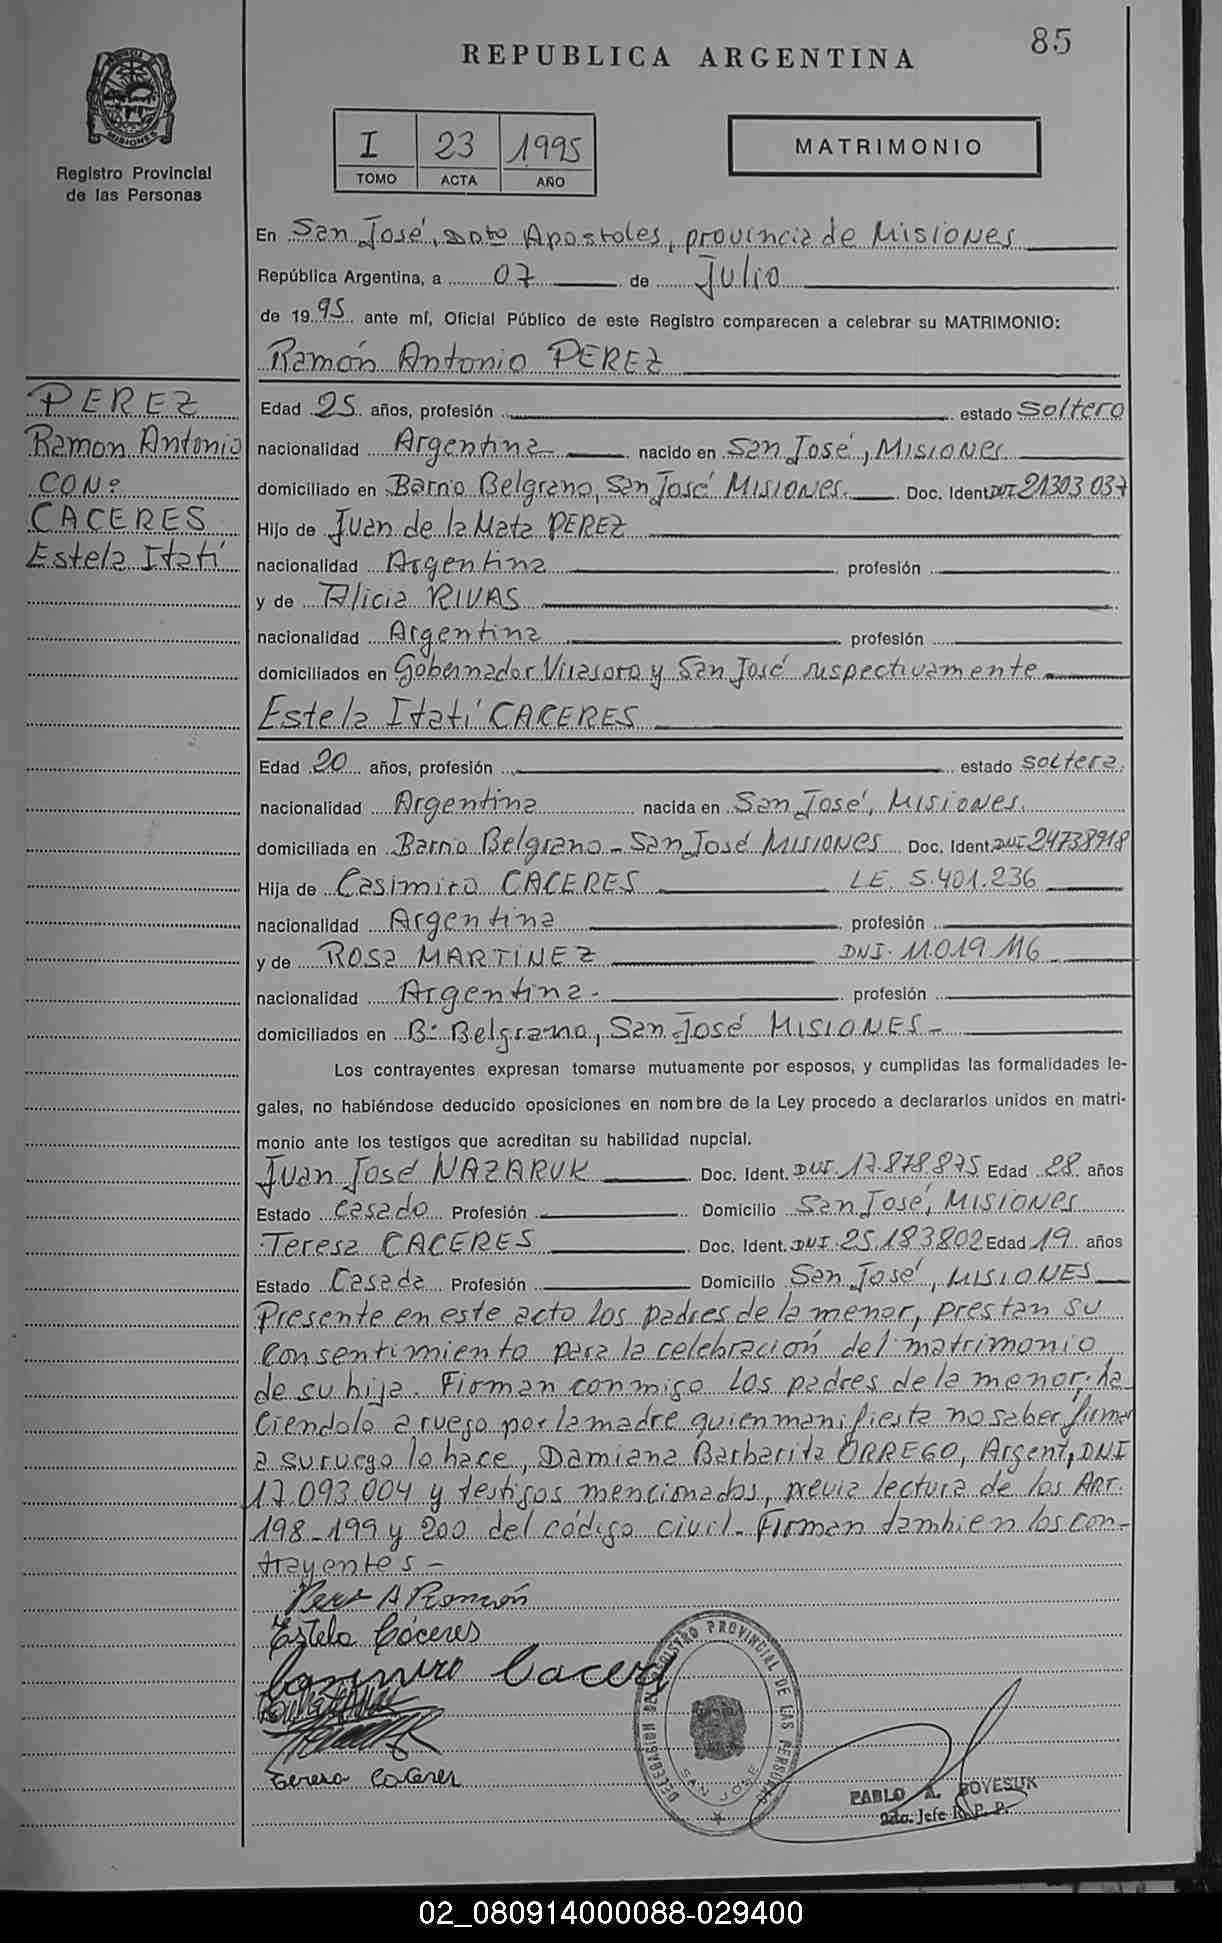 85
REPUBLICA ARGENTINA
MISIONES
Registro Provincial
de las Personas
I 23 1995
TOMO ACTA AÑO
MATRIMONIO
En San José, Dpto Apostoles, provincia de Misiones
República Argentina, a 07 de Julio
de 1995 ante mí, Oficial Público de este Registro comparecen a celebrar su MATRIMONIO:
Ramón Antonio PEREZ
PEREZ
Ramon Antonio
CON:
CACERES
Estela Itatí
Edad 25 años, profesión estado Soltero
nacionalidad Argentina nacido en San José, Misiones
domiciliado en Barrio Belgrano, San José Misiones. Doc. Ident. DNI 21303 037
Hijo de Juan de la Mata PEREZ
nacionalidad Argentina profesión
y de Alicia RIVAS
nacionalidad Argentina profesión
domiciliados en Gobernador Virasoro y San José respectivamente
Estela Itatí CACERES
Edad 20 años, profesión estado soltera
nacionalidad Argentina nacida en San José, Misiones.
domiciliada en Barrio Belgrano - San José Misiones Doc. Ident. DNI 24738918
Hija de Casimiro CACERES L.E. 5.401.236
nacionalidad Argentina profesión
y de Rosa MARTINEZ DNI. 11.019.116
nacionalidad Argentina - profesión
domiciliados en B° Belgrano, San José Misiones -
Los contrayentes expresan tomarse mutuamente por esposos, y cumplidas las formalidades le-
gales, no habiéndose deducido oposiciones en nombre de la Ley procedo a declararlos unidos en matri-
monio ante los testigos que acreditan su habilidad nupcial.
Juan José NAZARUK Doc. Ident. DNI. 17.878.875 Edad 28 años
Estado Casado Profesión Domicilio San José, Misiones
Teresa CACERES Doc. Ident. DNI. 25.183802 Edad 19 años
Estado Casada Profesión Domicilio San José, Misiones
Presente en este acto los padres de la menor, prestan su
consentimiento para la celebración del matrimonio
de su hija. Firman conmigo los padres de la menor, ha
ciendolo a ruego por la madre quien manifiesta no saber firmar
a su ruego lo hace, Damiana Barbarita ORREGO, Argent, DNI
17.093.004 y testigos mencionados, previa lectura de los ART.
198-199 y 200 del código civil. Firman tambien los con-
trayentes -
Perez A Ramón
Estela Cáceres
Casimiro Caceres
Teresa Caceres
DELEGACION DEL REGISTRO PROVINCIAL DE LAS PERSONAS
SAN JOSE
PABLO A. BOYESUK
2do. Jefe R. P. P.
02_080914000088-029400